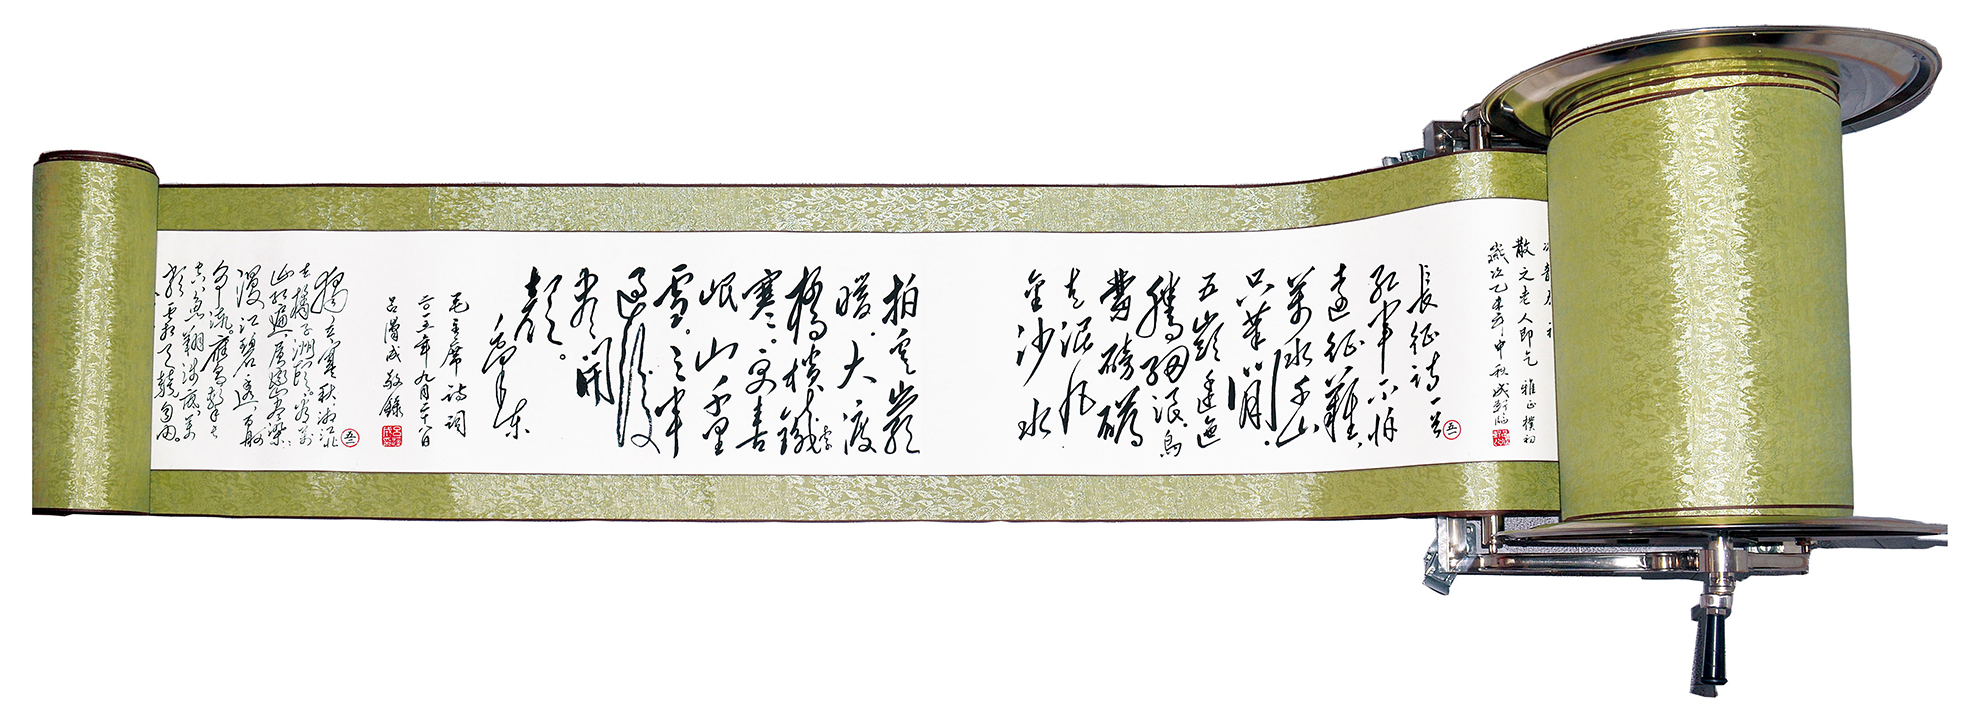 散之老人即乞 雅正 樸初
歲次乙未年中秋
長征詩一首
五一
紅軍不怕
遠征難,
萬水千山
只等閒。
五嶺逶迤
騰細浪,烏
蒙磅礴
走泥丸
金沙水
拍雲崖
暖,大渡
橋橫鐵索
寒。更喜
岷山千里
雪。三軍
過後
盡開
顏。
毛澤東
毛主席詩詞
二〇一五年九月二十八日
吕漢成敬錄
獨立寒秋,湘江北
去橘子洲頭。看萬
山紅遍,層林盡染;
漫江碧透,百舸
爭流。鷹擊長
空,魚翔淺底,萬
類霜天競自由。